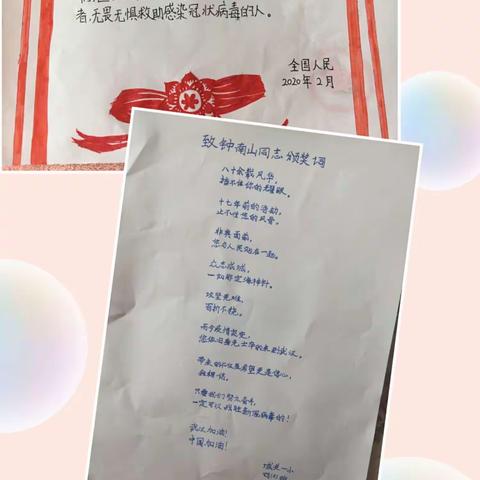 者,无畏无惧救助感染冠状病毒的人。
全国人民
2020年2月
致钟南山同志颁奖词
八十余载风华,
挡不住你的耀眼。
十七年前的活动,
止不住您的风骨。
非典面前,
您与人民站在一起。
众志成城,
一如那定海神针。
攻坚克难,
百折不挠。
而今疫情提笔,
您依旧身先士卒的来到武汉。
带来的不仅是希望更是信心,
我相信,
只要我们努力奋斗,
一定可以战胜新冠病毒的!
武汉加油!
中国加油!
城关一小